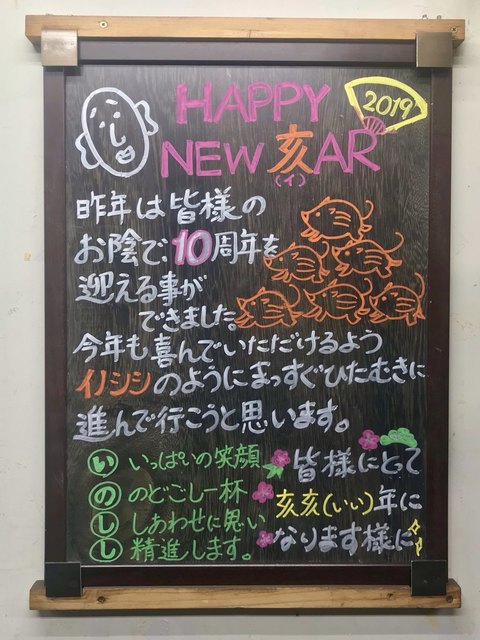 HAPPY
2019
NEW 亥AR
(イ)
昨年は皆様の
お陰で、10周年を
迎える事が
できました。
今年も喜んでいただけるよう
イノシシのようにまっすぐひたむきに
進んで行こうと思います。
い いっぱいの笑顔
の のどごし一杯
し しあわせに思い
し 精進します。
皆様にとって
亥亥(いい)年に
なります様に